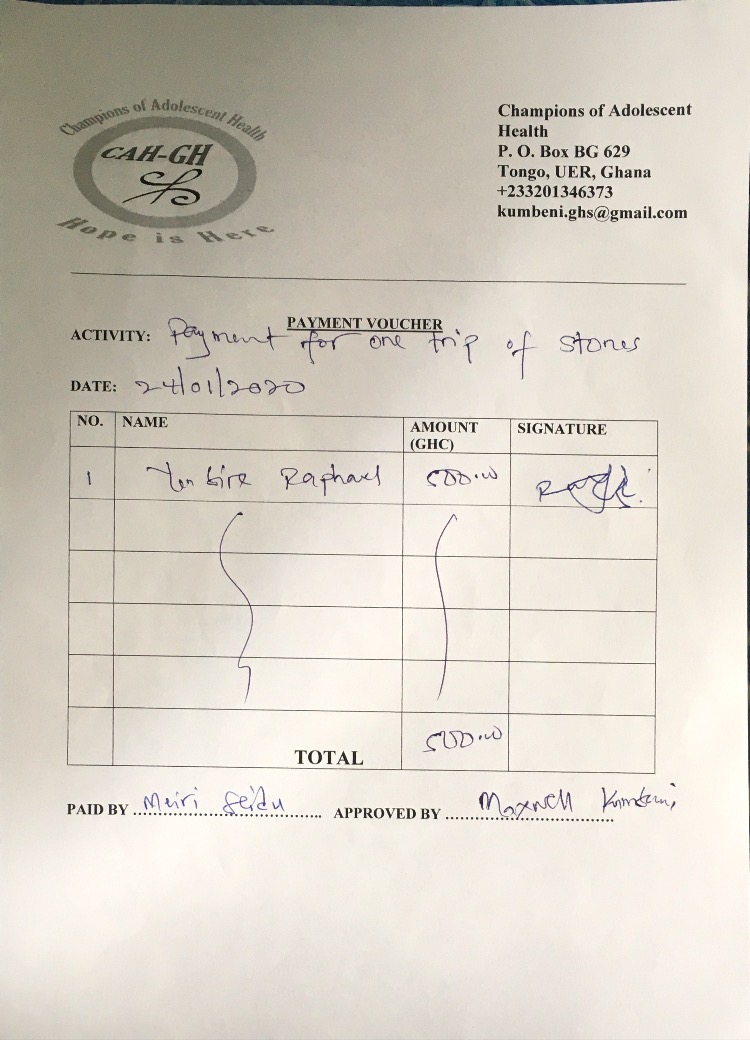 Champions of Adolescent Health
CAH-GH
Hope is Here
Champions of Adolescent
Health
P. O. Box BG 629
Tongo, UER, Ghana
+233201346373
kumbeni.ghs@gmail.com
PAYMENT VOUCHER
ACTIVITY: Payment for one trip of stones
DATE: 24/01/2020
NO. NAME AMOUNT (GHC) SIGNATURE
1 Raphael 500.00
TOTAL 500.00
PAID BY Meiri Seidu APPROVED BY Maxwell Kumbeni